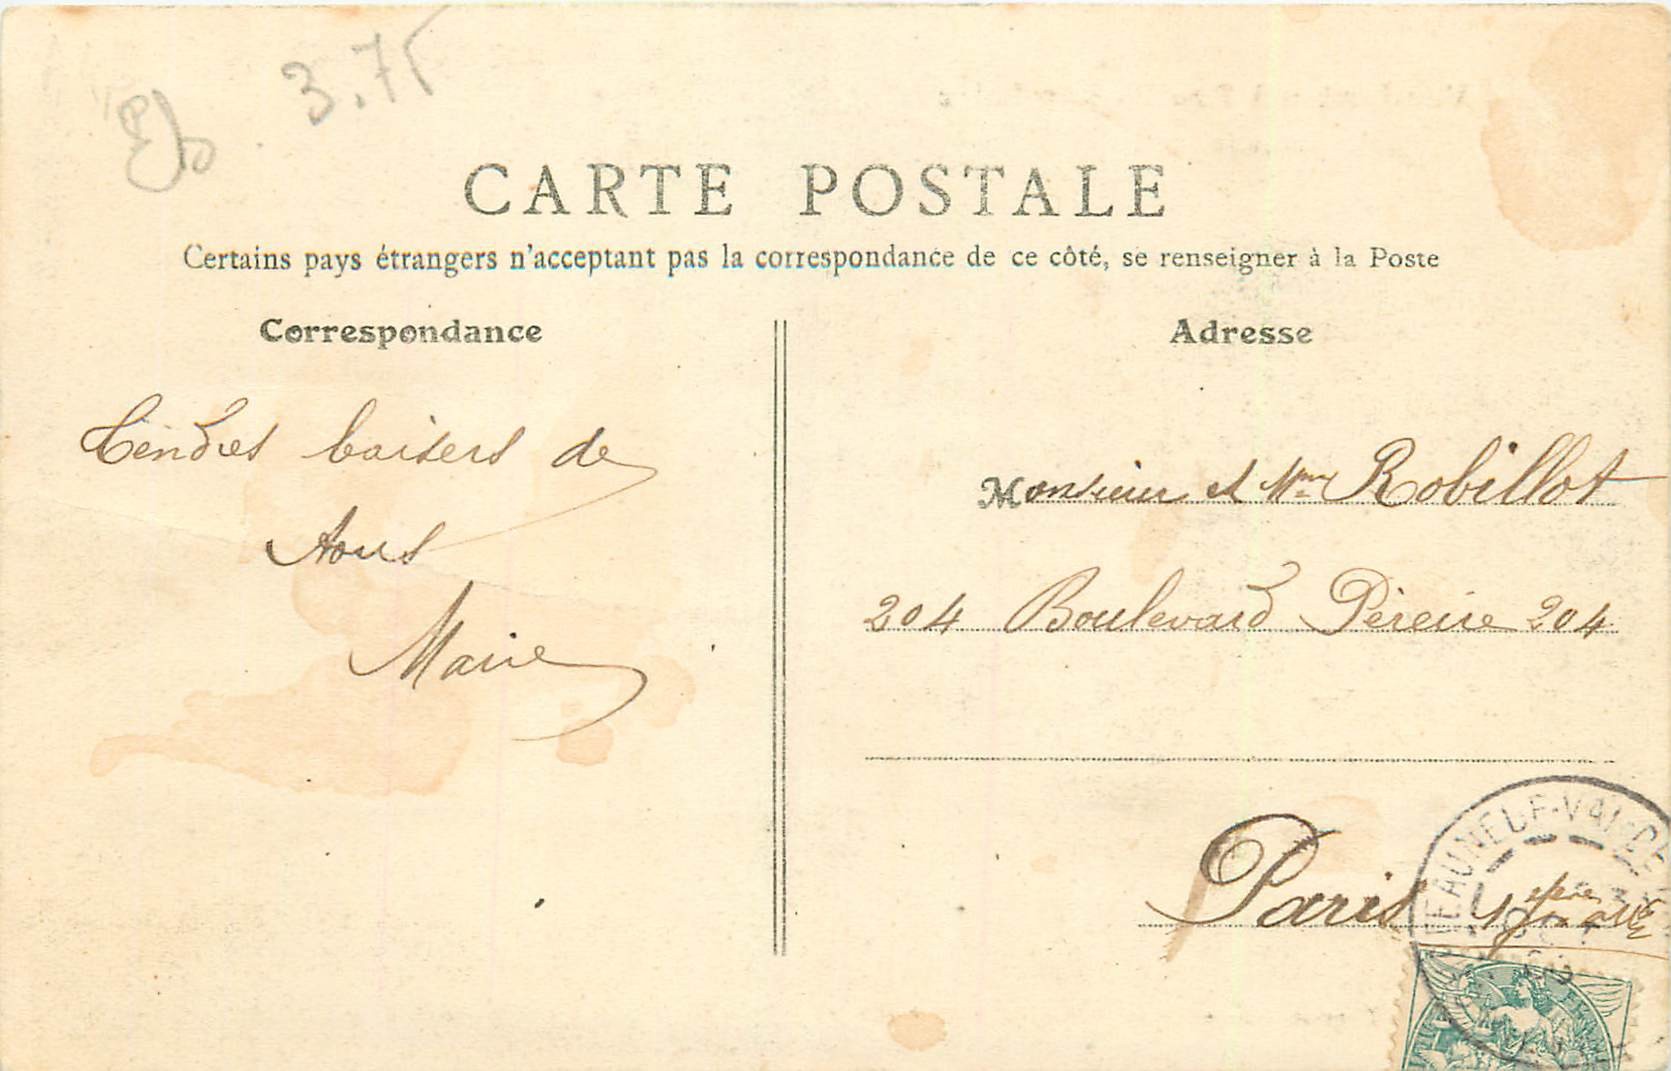 3.75
CARTE POSTALE
Certains pays étrangers n'acceptant pas la correspondance de ce côté, se renseigner à la Poste
Correspondance
Adresse
Tendres baisers de
tous
Marie
Monsieur et Mme Robillot
204 Boulevard Péreire 204
Paris